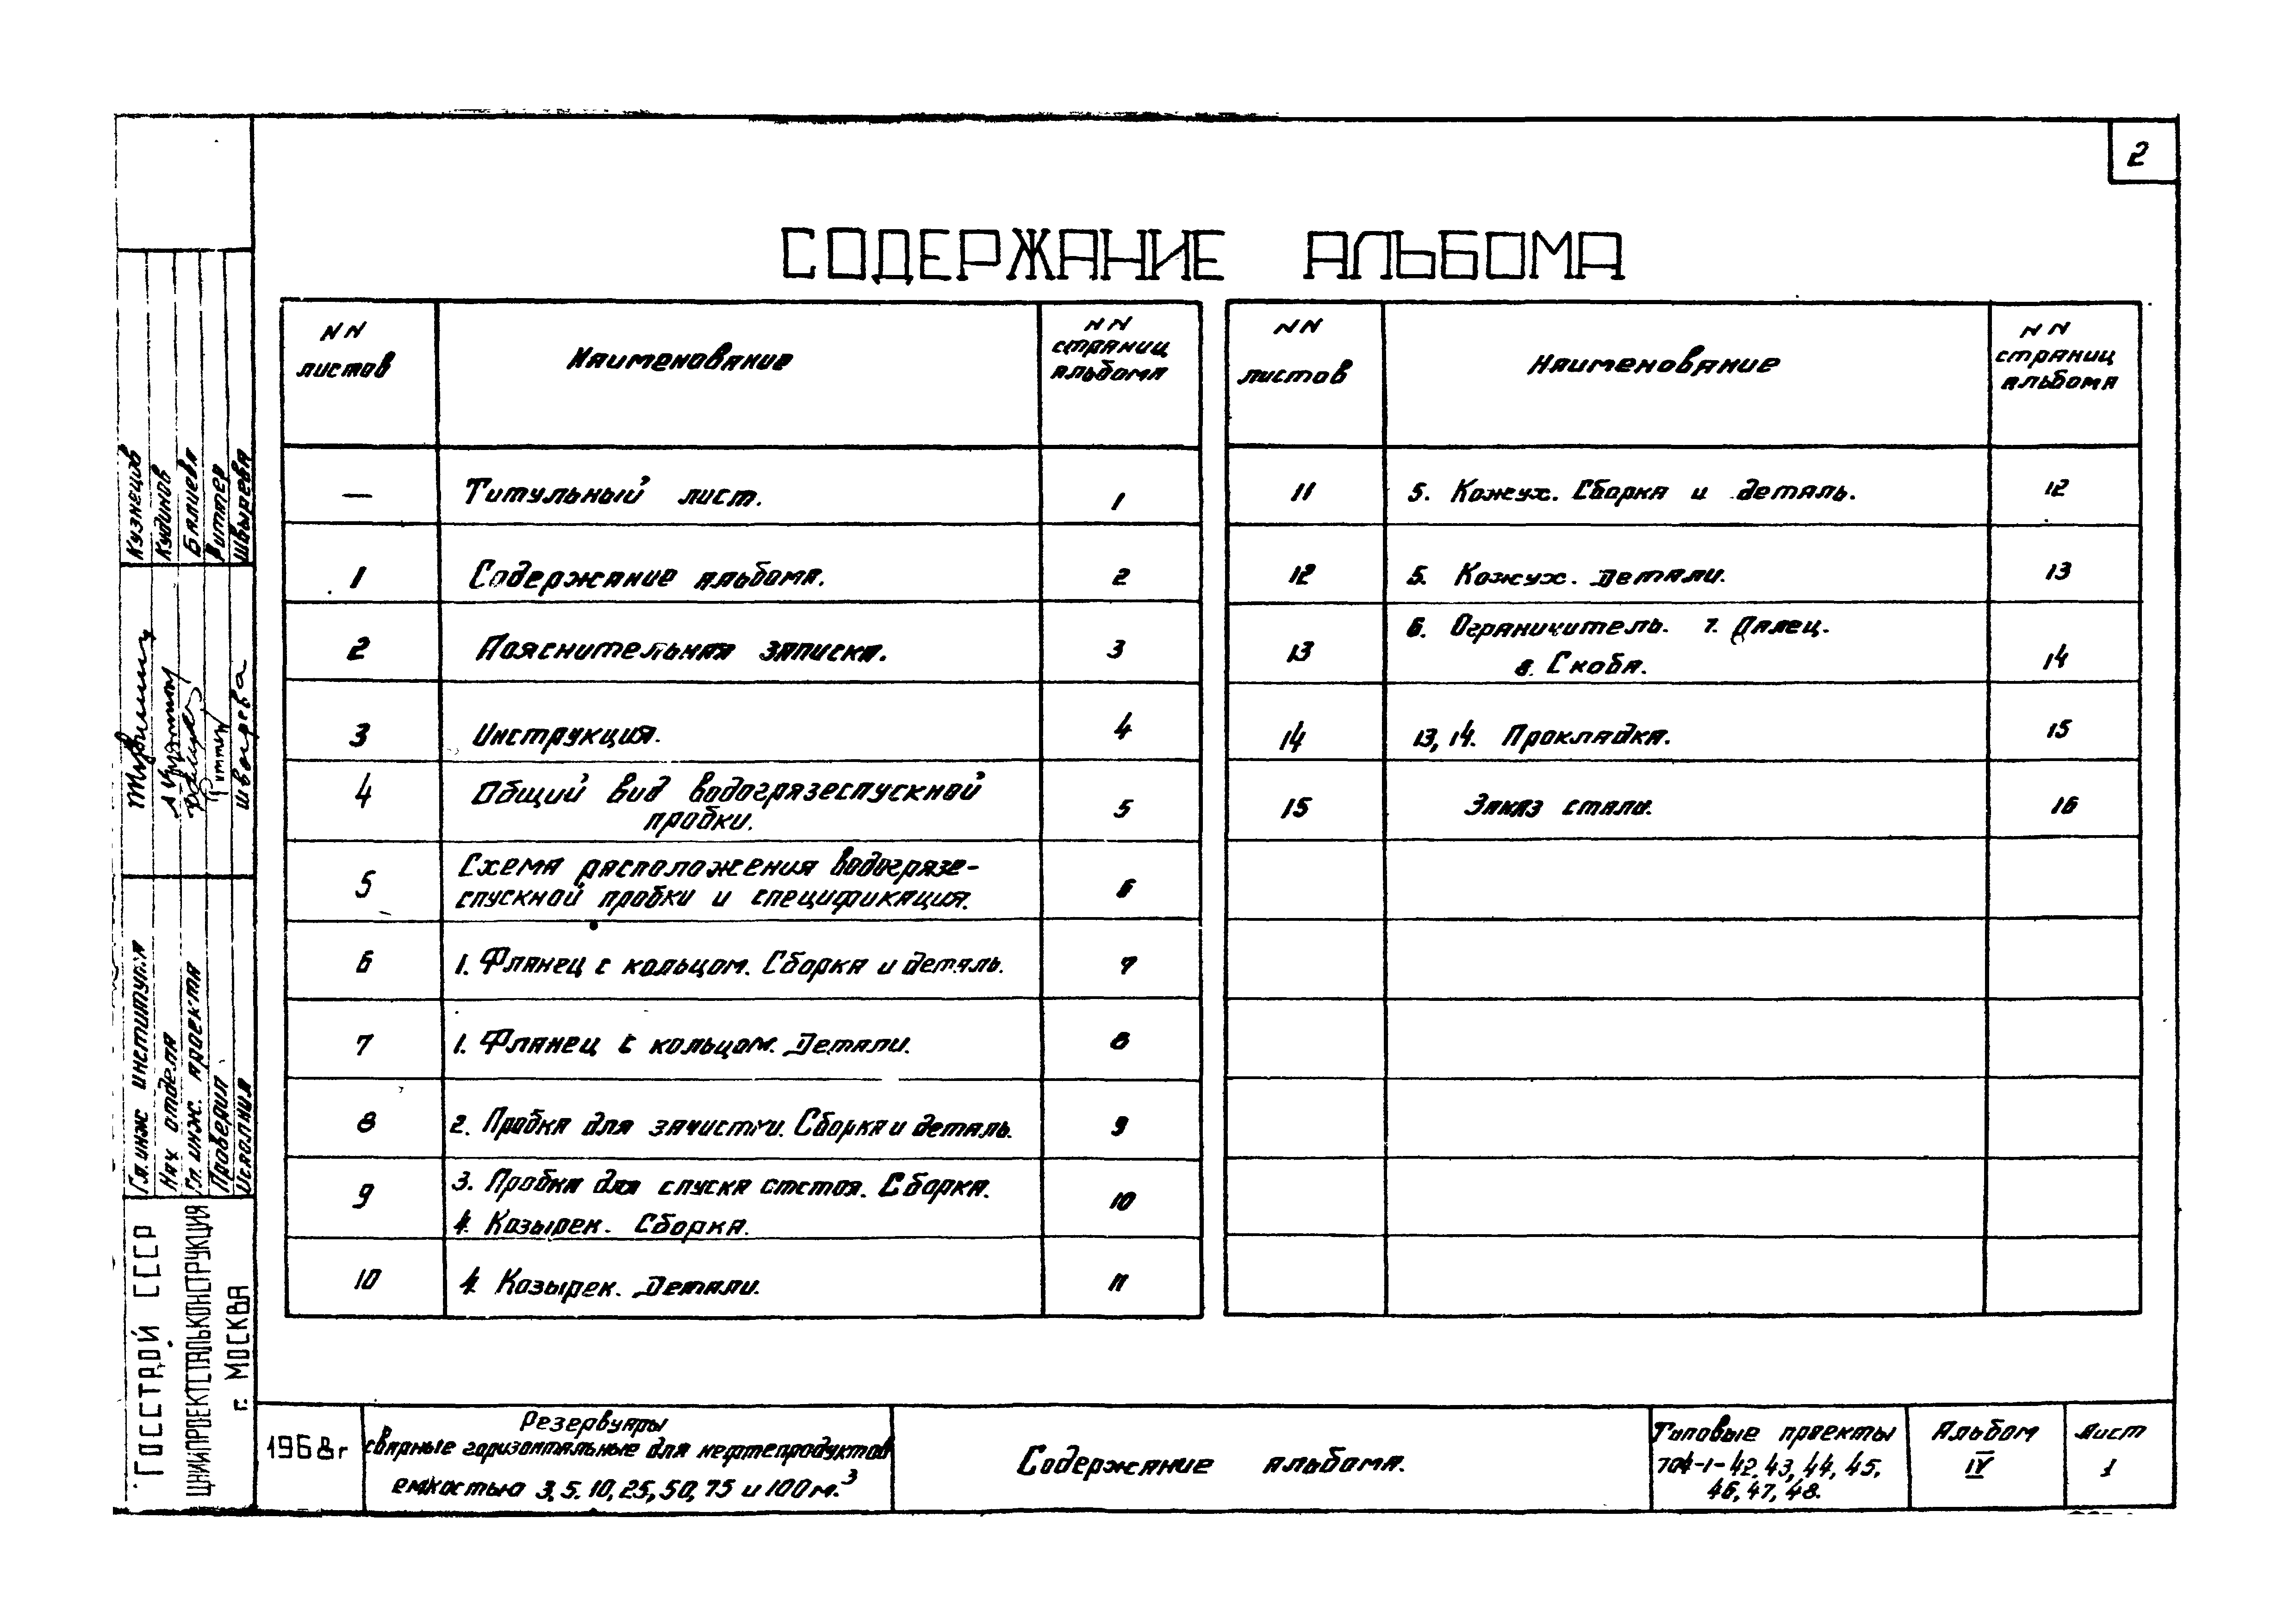 2
СОДЕРЖАНИЕ АЛЬБОМА
NN
листов
Наименование
NN
страниц
альбома
— Титульный лист. 1
1 Содержание альбома. 2
2 Пояснительная записка. 3
3 Инструкция. 4
4 Общий вид водогрязеспускной
пробки. 5
5 Схема расположения водогрязе-
спускной пробки и спецификация. 6
6 1. Фланец с кольцом. Сборка и деталь. 7
7 1. Фланец с кольцом. Детали. 8
8 2. Пробка для зачистки. Сборка и деталь. 9
9 3. Пробка для спуска отстоя. Сборка. 10
4. Козырек. Сборка.
10 4. Козырек. Детали. 11
NN
листов
Наименование
NN
страниц
альбома
11 5. Кожух. Сборка и деталь. 12
12 5. Кожух. Детали. 13
13 6. Ограничитель. 7. Палец.
8. Скоба. 14
14 13, 14. Прокладка. 15
15 Заказ стали. 16
Кузнецов
Кудинов
Бялиева
Виттер
Швырева
Швырева
Гл. инж института
Нач отдела
Гл. инж. проекта
Проверил
Исполнил
ГОССТРОЙ СССР
ЦНИИПРОЕКТСТАЛЬКОНСТРУКЦИЯ
г. МОСКВА
1968г
Резервуары
сварные горизонтальные для нефтепродуктов
емкостью 3, 5, 10, 25, 50, 75 и 100 м.³
Содержание альбома.
Типовые проекты
704-1-42, 43, 44, 45,
46, 47, 48.
Альбом
IV
Лист
1